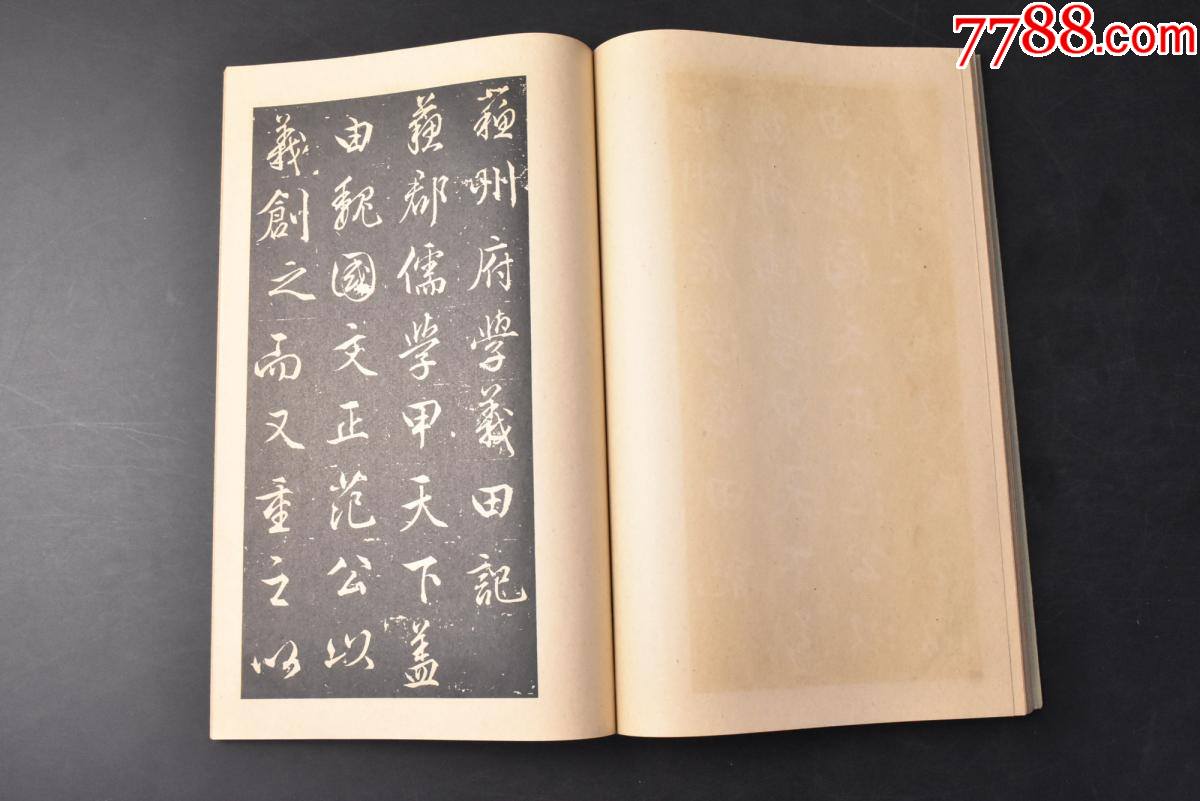 7788.com
蘓州府学義田記
蘓郡儒学甲天下蓋
由魏國文正范公以
義創之而又重之以